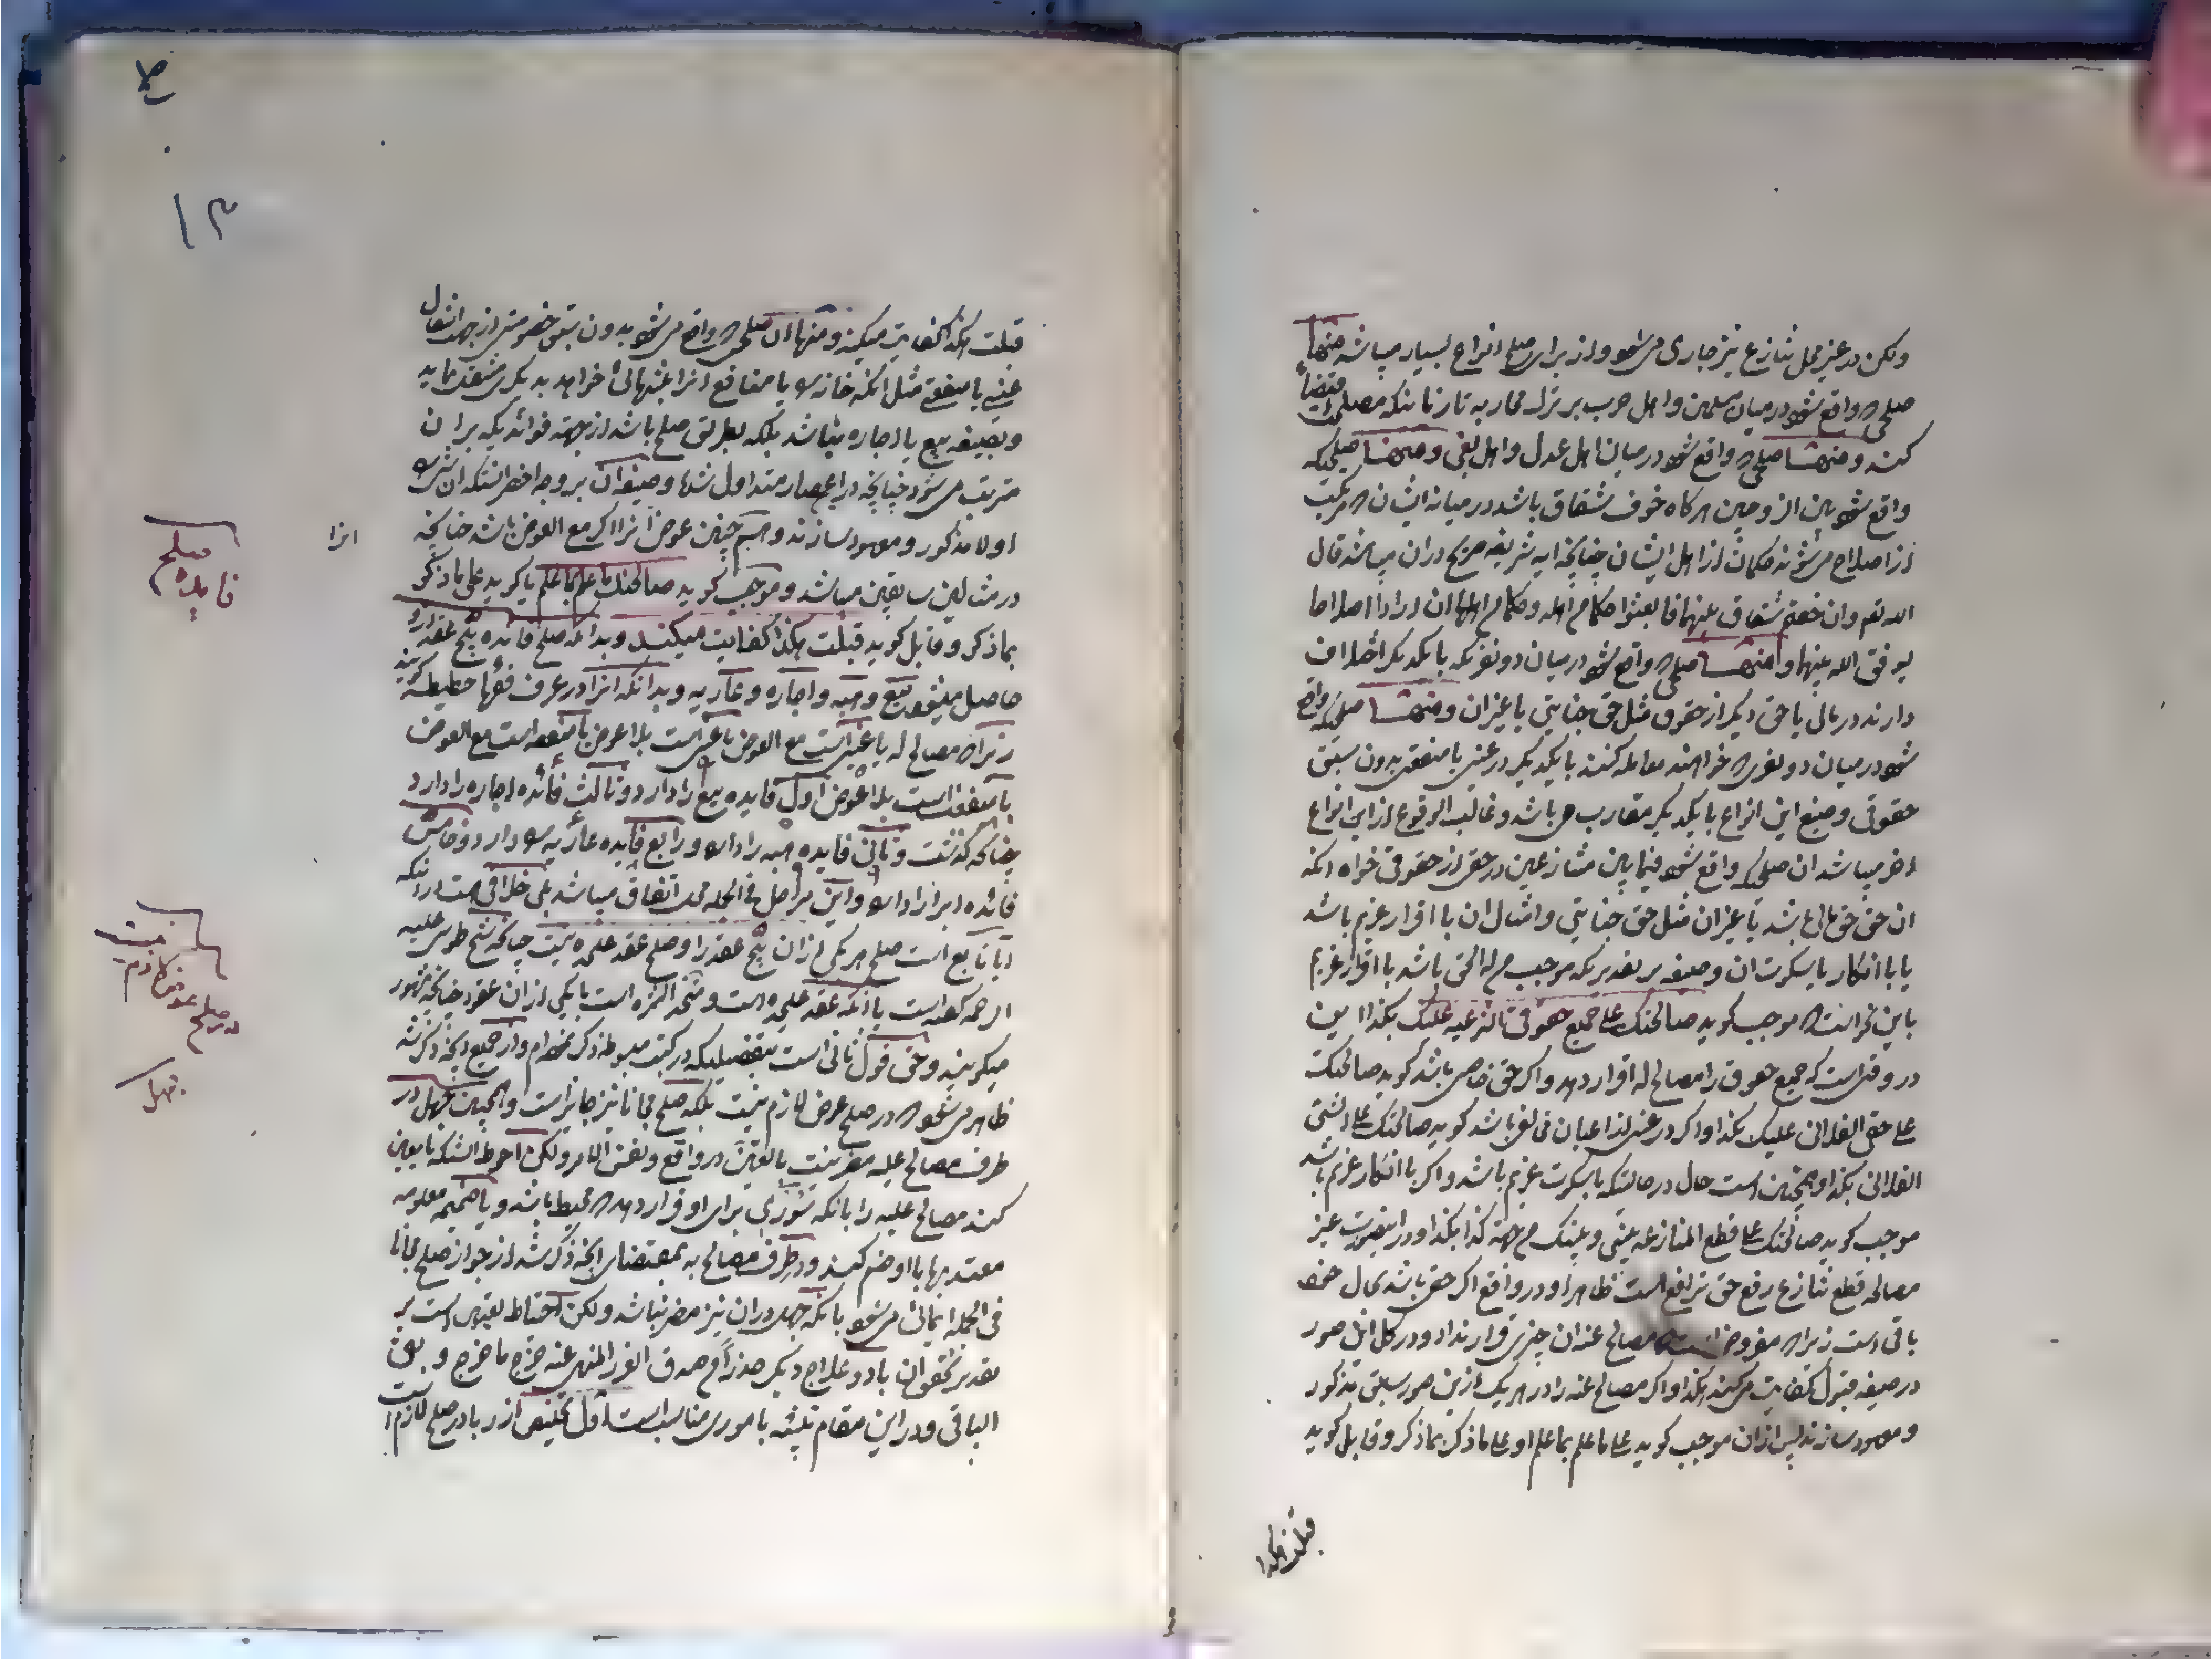 ولکن در غیر محل تنازع نیز جاری می‌شود و از برای صلح انواع بسیار میباشد منها
صلحی که واقع شود در میان مسلمین و اهل حرب بر ترک محاربه تا زمانیکه مصلحت اقتضاء
کند و منها صلحی که واقع شود در میان اهل عدل و اهل بغی و منها صلحیکه
واقع شود بین الزوجین هر کاه خوف شقاق باشد در میانه ایشان که مرکب
از اصلاح می‌شوند حکمان از اهل ایشان چنانچه ایه شریفه صریح در ان میباشد قال
الله تعم وان خفتم شقاق بینهما فابعثوا حکما من اهله وحکما من اهلها ان ارادا اصلاحا
یوفق الله بینهما و منها صلحی که واقع شود در میان دو نفریکه با یکدیکر اختلاف
دارند در مالی یا حق دیکر از حقوق مثل حق جنایتی یا غیر ان و منها صلحی که واقع
شود در میان دو نفری که خواهند معامله کنند با یکدیکر در عینی یا منفعتی بدون سبق
حقوقی و صیغ این انواع با یکدیکر متقارب می باشد و غالب الوقوع از این انواع
اخر میباشد ان صلحی که واقع شود فیما بین متنازعین در حقی از حقوق خواه انکه
ان حق حق مالی باشد یا غیر ان مثل حق جنایتی و امثال ان با اقرار غریم باشد
یا با انکار یا سکوت ان و صیغه بر تقدیریکه موجب من له الحق باشد با اقرار غریم
باین نحو است که موجب کوید صالحتک علی جمیع حقوقی الشرعیه علیک بکذا و این
در وقتی است که جمیع حقوق را مصالح له اقرار دهد و اکر حق خاصی باشد کوید صالحتک
علی حقی الفلانی علیک بکذا و اکر در عینی از اعیان فی الغیر باشد کوید صالحتک علی الشئ
الفلانی بکذا و همچنین است حال در حالتیکه با سکوت غریم باشد و اکر با انکار غریم باشد
موجب کوید صالحتک علی قطع المنازعه بینی و بینک من جهة کذا بکذا و در اینصورت غیر
مصالحه قطع تنازع رفع حق ترافع است ظاهرا و در واقع اکر حق باشد بحال خود
باقی است زیرا که مفروض است که مصالح عنه ان چیزی قرار نداد و در کل این صور
در صیغه قبول کفایت می‌کند هکذا و اکر مصالح عنه را در هر یک از این صور سابق مذکور
و معهود سازند پس از ان موجب کوید علی ما علم بما علم او علی ما ذکر بما ذکر و قابل کوید
قبلت هکذا
۱۳
قبلت هکذا کفایت میکند و منها ان صلحی که واقع می‌شود بدون سبق خصومتی از جهة انتقال
عینی یا منفعتی مثل انکه خانه را یا منافع انرا بثمنهائی خواهد بدیکری منتقل نماید
و بصیغه بیع یا اجاره نباشد بلکه بطریق صلح باشد از جهة فوائدیکه بر ان
مترتب می‌شود چنانچه در این اعصار متداول شده و صیغه ان بر وجه اخصر انستکه ان شئ را
اولا مذکور و معهود سازند و همچنین عوض انرا اکر مع العوض باشد چنانچه
انرا
در مثالین سابقین میباشد و موجب کوید صالحتک ما علم بما علم یا کوید علی ما ذکر
بما ذکر و قابل کوید قبلت هکذا کفایت میکند و بدانکه صلح فایده پنج عقد دارد
فایده صلح
حاصل میشود بیع و هبه و اجاره و عاریه و بدانکه انرا در عرف فقها حطیطه کویند
زیرا که مصالح له یا عین است مع العوض یا عین است بلا عوض یا منفعه است مع العوض
یا منفعة است بلا عوض اول فایده بیع را دارد و ثالث فائده اجاره را دارد
چنانکه کذشت و ثانی فایده هبه را دارد و رابع فایده عاریه را دارد و خامس
فائده ابرا را دارد و این مراحل فی الجمله محل اتفاق میباشد بلی خلافی هست در اینکه
ایا تابع است صلح هر یکی از ان پنج عقد را و صلح عقد علیحده نیست چنانکه شیخ طوسی علیه
الرحمه کفته است یا انکه عقد علیحده است و متحد الثمره است با یکی از ان عقود چنانچه مشهور
میکویند و حق قول ثانی است بتفضیلیکه در کتب مبسوطه ذکر نموده‌ام و از جمیع انچه ذکر شد
ظاهر می‌شود که در صلح عوض لازم نیست بلکه صلح مجانا نیز جایز است و همچنین جهل در
در صلح عوض لازم نیست
جهل
طرف مصالح علیه مضر نیست بالیقین در واقع و نفس الامر ولکن احوط انستکه تا یقین
کنند مصالح علیه را بانکه شئوری برای او قرار دهد که محیط باشد و یا ضمیمه معلومه
معتد بها با او ضم کنند و در طرف مصالح به بمقتضای انچه ذکر شد از جواز صلح مجانا
فی الجمله ایمائی می‌شود بانکه جهل در ان نیز مضر نباشد ولکن احتیاط بقوت است بر
تقدیر تحقق ان باد و علاج دیکر حذرا من صدق الغرر المنهی عنه خرج ما خرج و بقی
الباقی و در این مقام تنبیه باموری مناسب است اول تخلیص از ربا در صلح لازم است